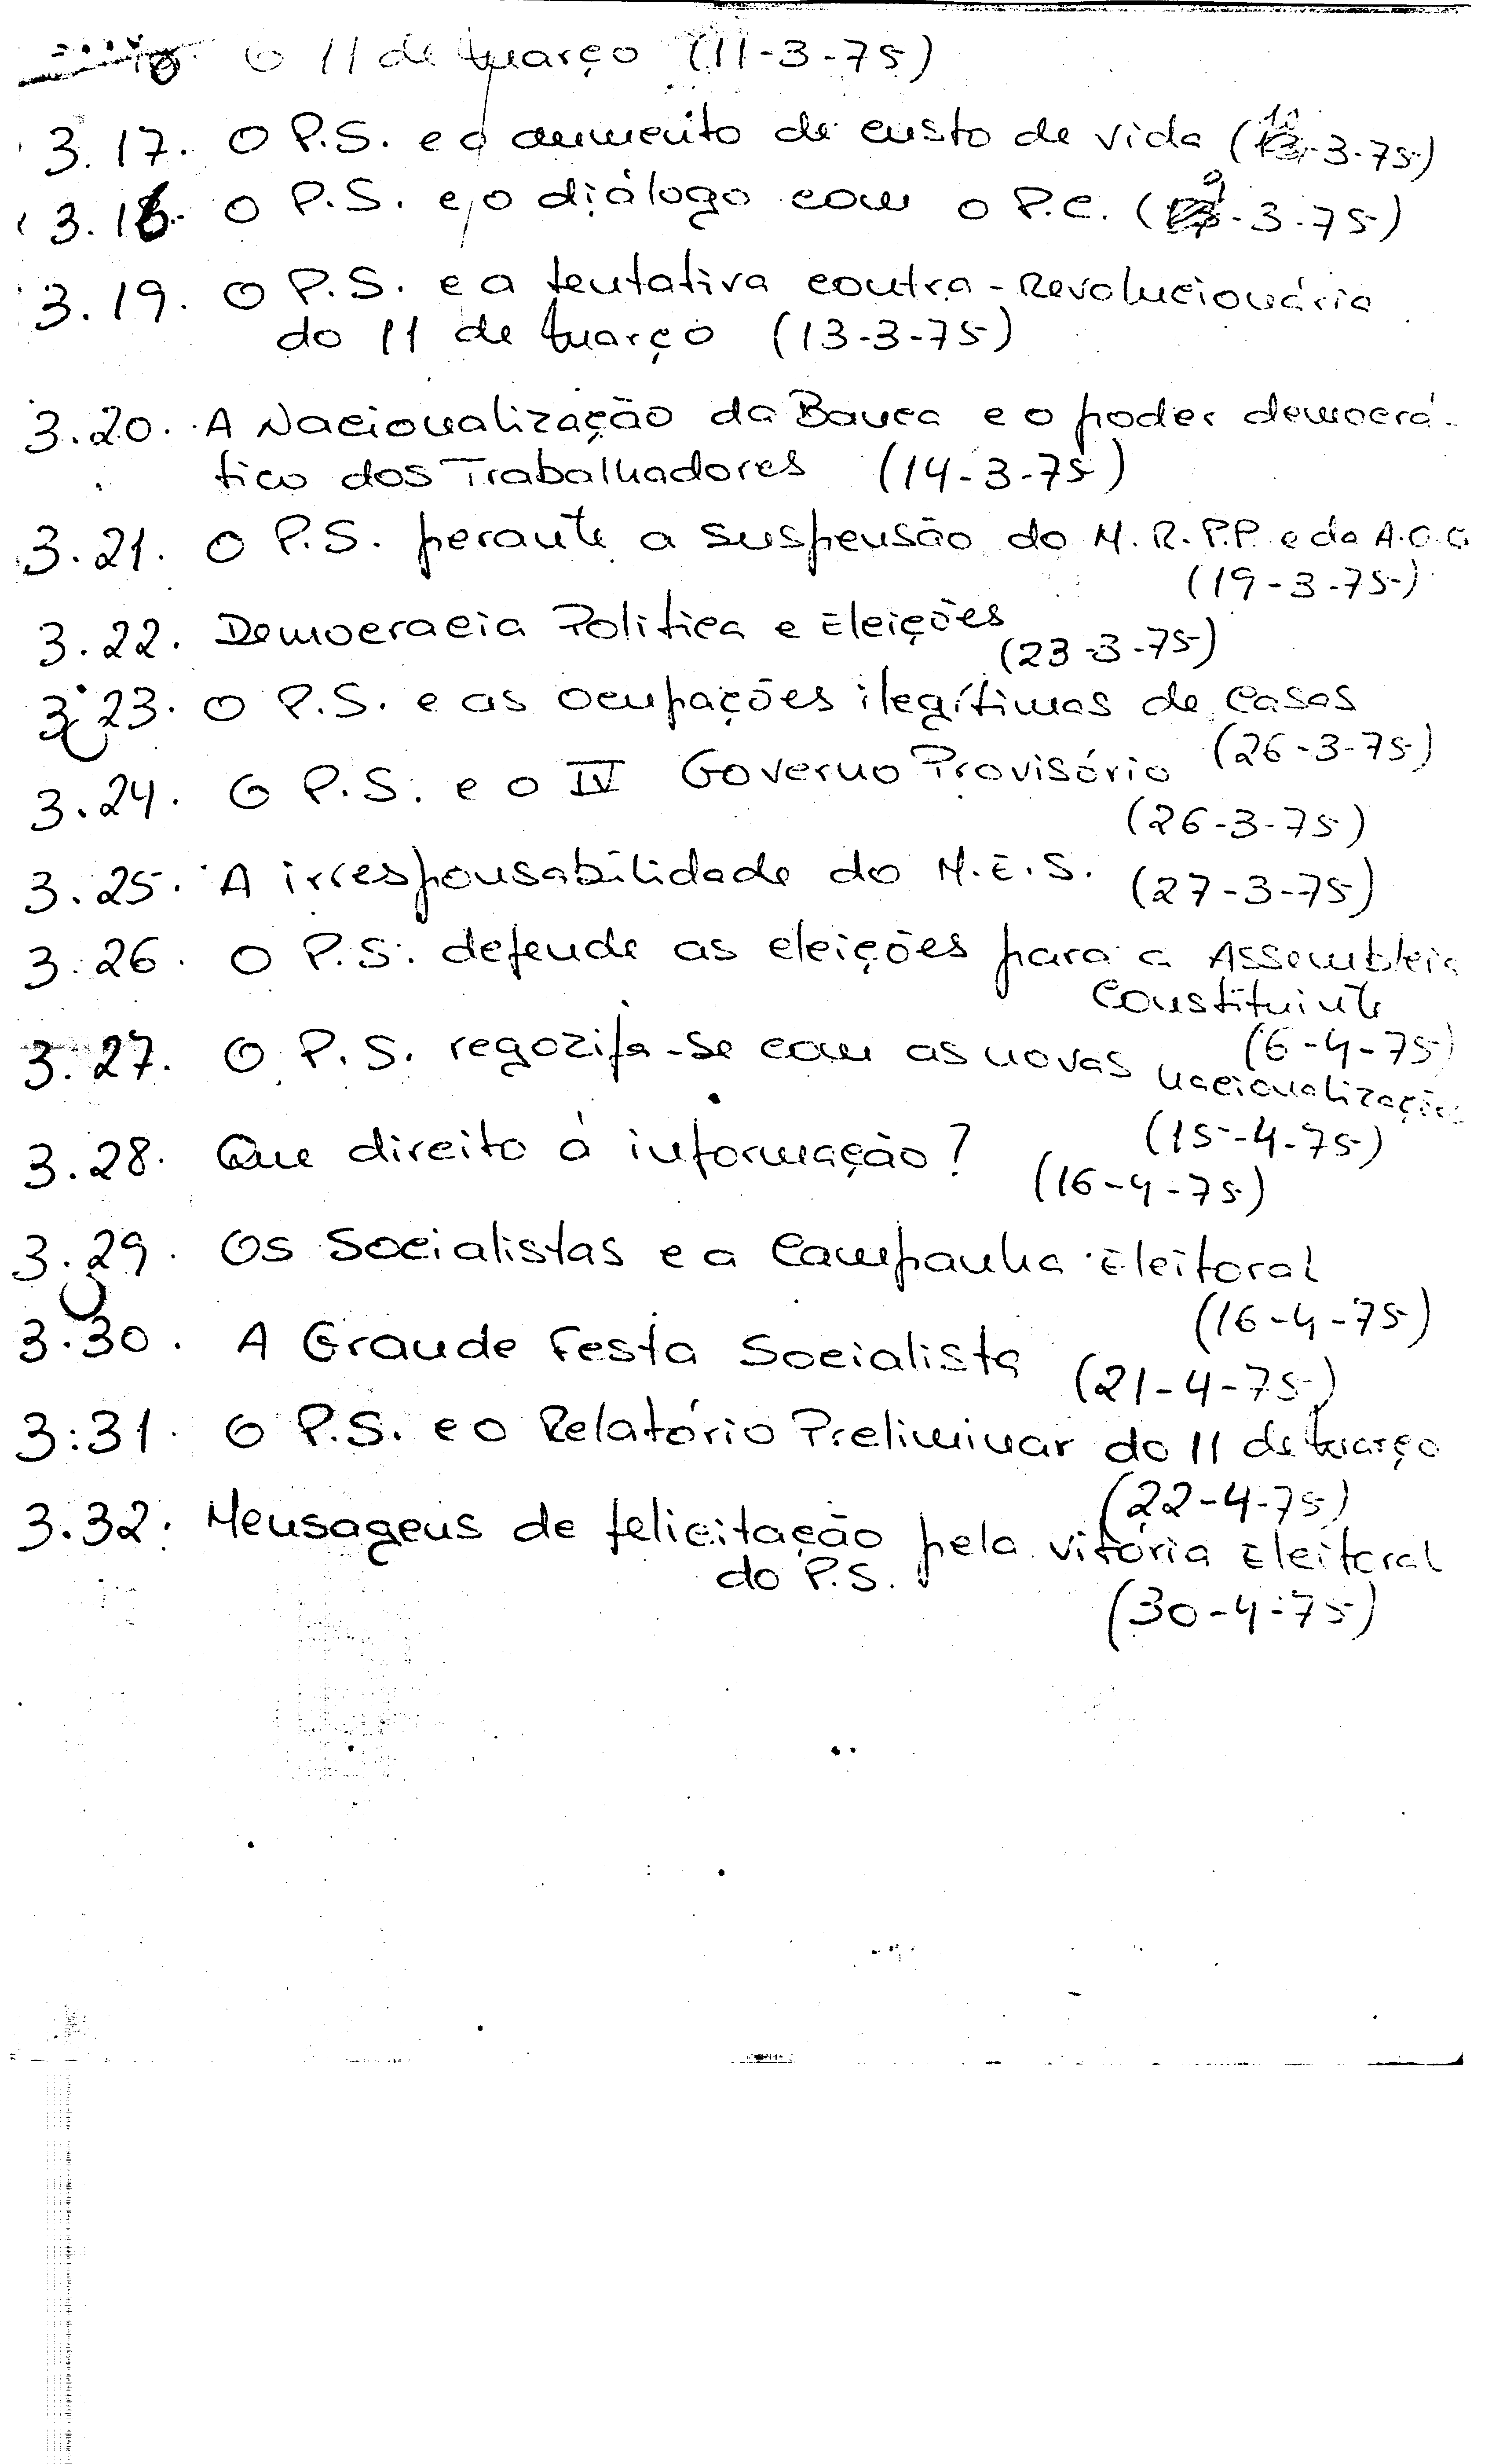 O 11 de Março (11-3-75)
3.17. O P.S. e o aumento de custo de vida (12-3-75)
3.18. O P.S. e o diálogo com o P.C. ( -3-75)
3.19. O P.S. e a tentativa contra-Revolucionária
do 11 de Março (13-3-75)
3.20. A Nacionalização da Banca e o poder democrá-
tico dos Trabalhadores (14-3-75)
3.21. O P.S. perante a suspensão do M.R.P.P. e da A.O.C.
(19-3-75)
3.22. Democracia Politica e Eleições
(23-3-75)
3.23. O P.S. e as ocupações ilegítimas de casas
(26-3-75)
3.24. O P.S. e o IV Governo Provisório
(26-3-75)
3.25. A irresponsabilidade do M.E.S. (27-3-75)
3.26. O P.S. defende as eleições para a Assembleia
Constituinte
(6-4-75)
3.27. O P.S. regozija-se com as novas nacionalizações
(15-4-75)
3.28. Que direito à informação? (16-4-75)
3.29. Os Socialistas e a Campanha Eleitoral
(16-4-75)
3.30. A Grande Festa Socialista (21-4-75)
3.31. O P.S. e o Relatório Preliminar do 11 de Março
(22-4-75)
3.32. Mensagens de felicitação pela vitória Eleitoral
do P.S.
(30-4-75)